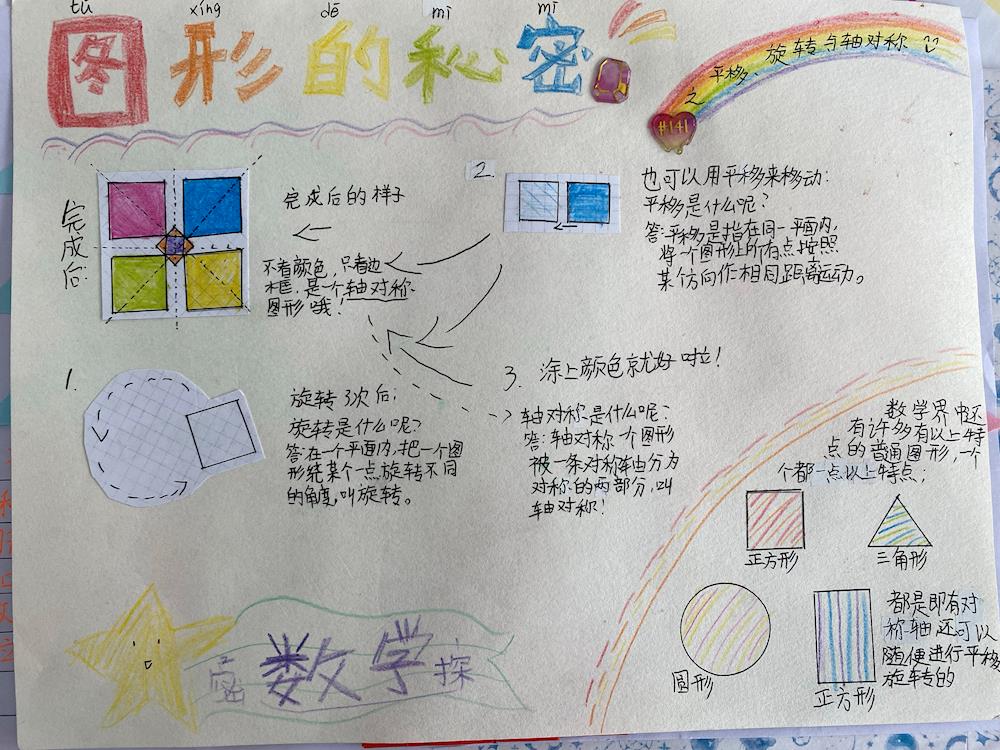 tú xíng dē mì mì
图形的秘密
之平移、旋转与轴对称
#141
完成后:
完成后的样子
不看颜色，只看边
框，是一个轴对称
图形哦!
2.
也可以用平移来移动:
平移是什么呢?
答:平移是指在同一平面内,
将一个图形上所有点按照
某个方向作相同距离运动。
1.
旋转3次后:
旋转是什么呢?
答:在一个平面内,把一个图
形绕某个点旋转不同
的角度,叫旋转。
3. 涂上颜色就好啦!
轴对称是什么呢?
答:轴对称一个图形
被一条对称轴分为
对称的两部分,叫
轴对称!
数学界中还
有许多有以上特
点的普通图形,一个
个都一点以上特点;
正方形
三角形
圆形
正方形
都是即有对
称轴还可以
随便进行平移
旋转的
密数学探